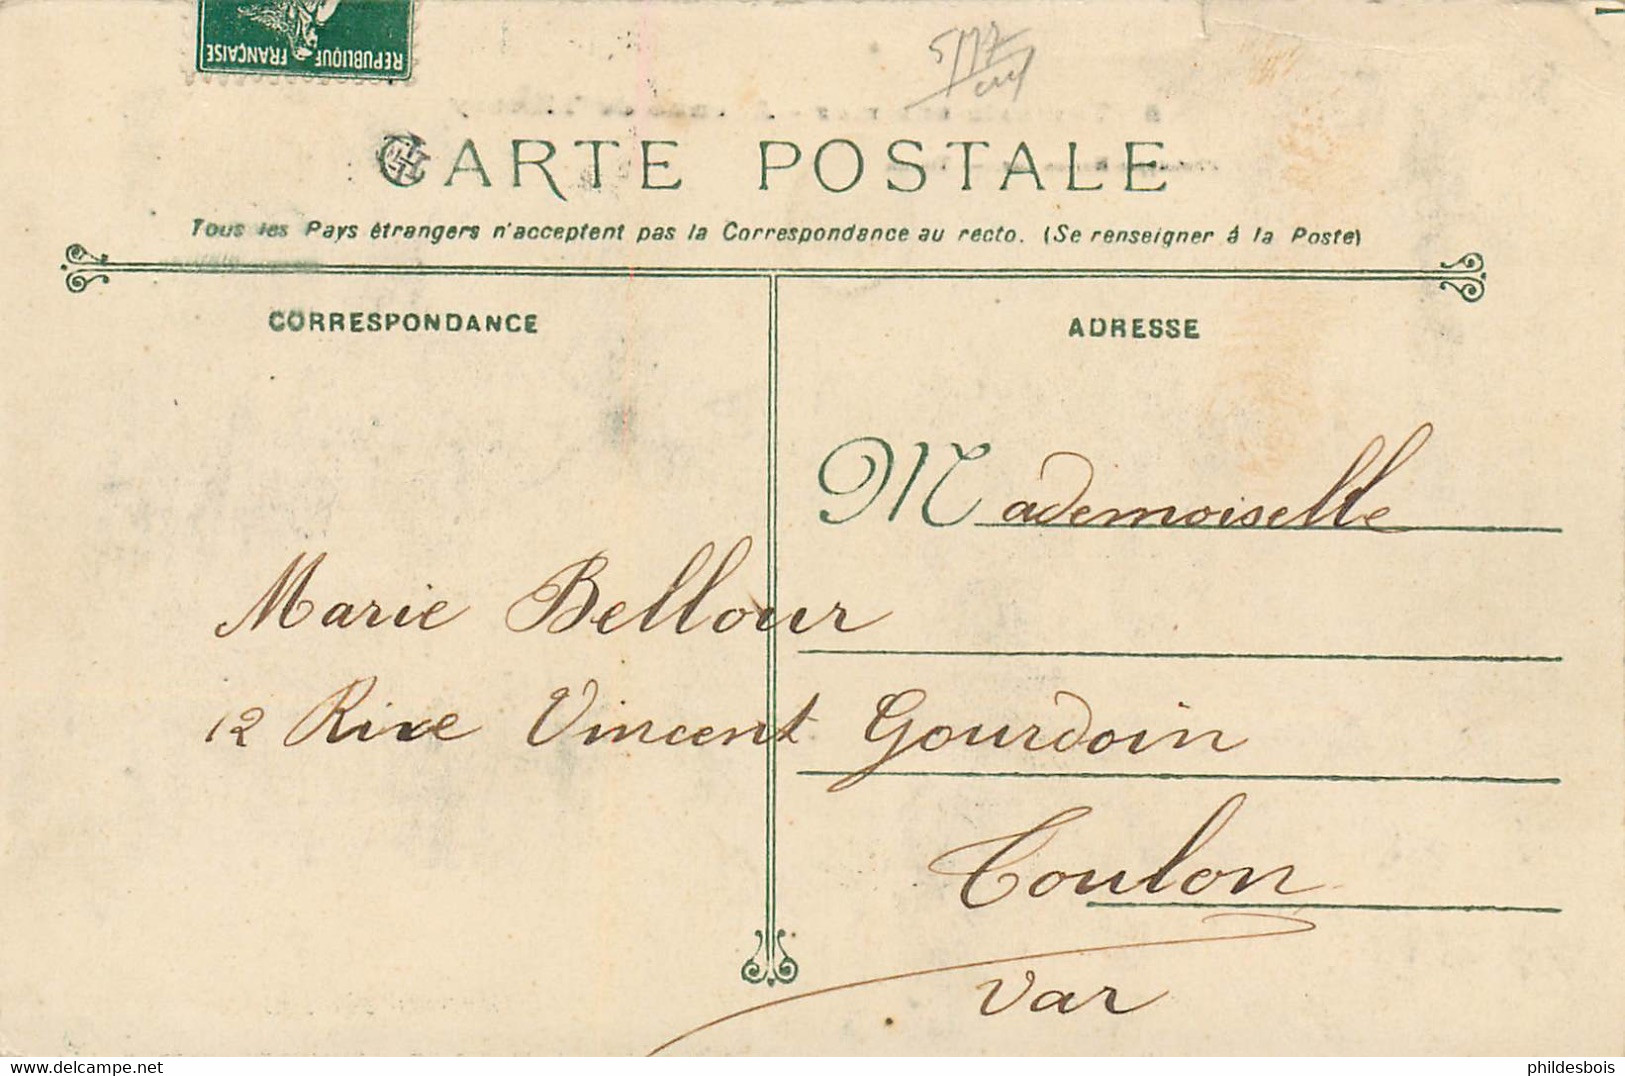 REPUBLIQUE FRANÇAISE
CARTE POSTALE
Tous les Pays étrangers n'acceptent pas la Correspondance au recto. (Se renseigner à la Poste)
CORRESPONDANCE
ADRESSE
Mademoiselle
Marie Bellour
12 Rue Vincent Gourdoin
Toulon
Var
www.delcampe.net
phildesbois